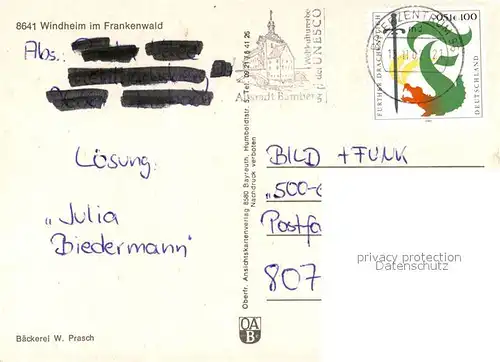 8641 Windheim im Frankenwald
Abs.:
Lösung:
"Julia
Biedermann"
Bäckerei W. Prasch
Oberfr. Ansichtskartenverlag 8580 Bayreuth, Humboldtstr. 5, Tel. 09 21 / 6 41 25
Nachdruck verboten
OA
B
Altstadt Bamberg
Weltkulturerbe
UNESCO
BRIEFZENTRUM
FURTHER DRACHENSTICH
DEUTSCHLAND
100
BILD + FUNK
"500-
Postfa
807
privacy protection
Datenschutz